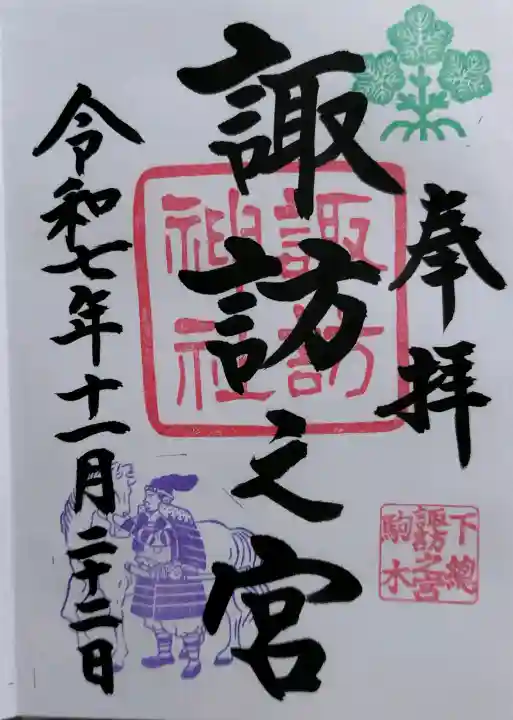 奉拝
諏訪之宮
諏訪
神社
下総
諏訪之宮
駒木
令和七年十一月二十二日